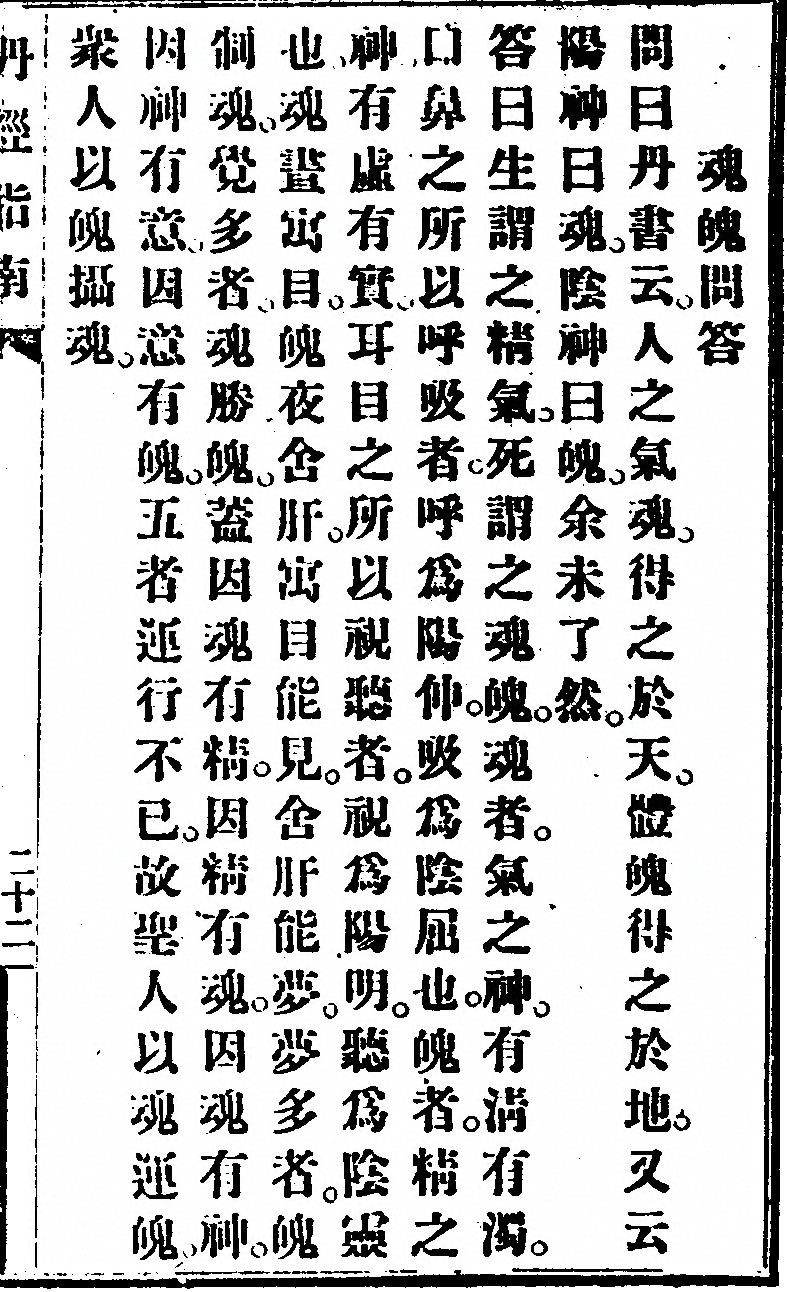 魂魄問答
問曰丹書云。人之氣魂。得之於天。體魄得之於地。又云
陽神曰魂。陰神曰魄。余未了然。
答曰生謂之精氣。死謂之魂魄。魂者。氣之神。有淸有濁。
口鼻之所以呼吸者。呼爲陽伸。吸爲陰屈也。魄者。精之
神、有虛有實、耳目之所以視聽者。視爲陽明。聽爲陰靈
也、魂晝寓目。魄夜舍肝。寓目能見。舍肝能夢。夢多者。魄
制魂。覺多者、魂勝魄。葢因魂有精。因精有魂。因魂有神。
因神有意、因意有魄。五者運行不已。故聖人以魂運魄、
衆人以魄攝魂。
丹經指南
二十二